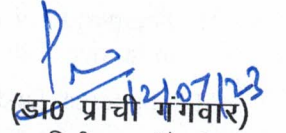 12/07/23
(डा० प्राची गंगवार)